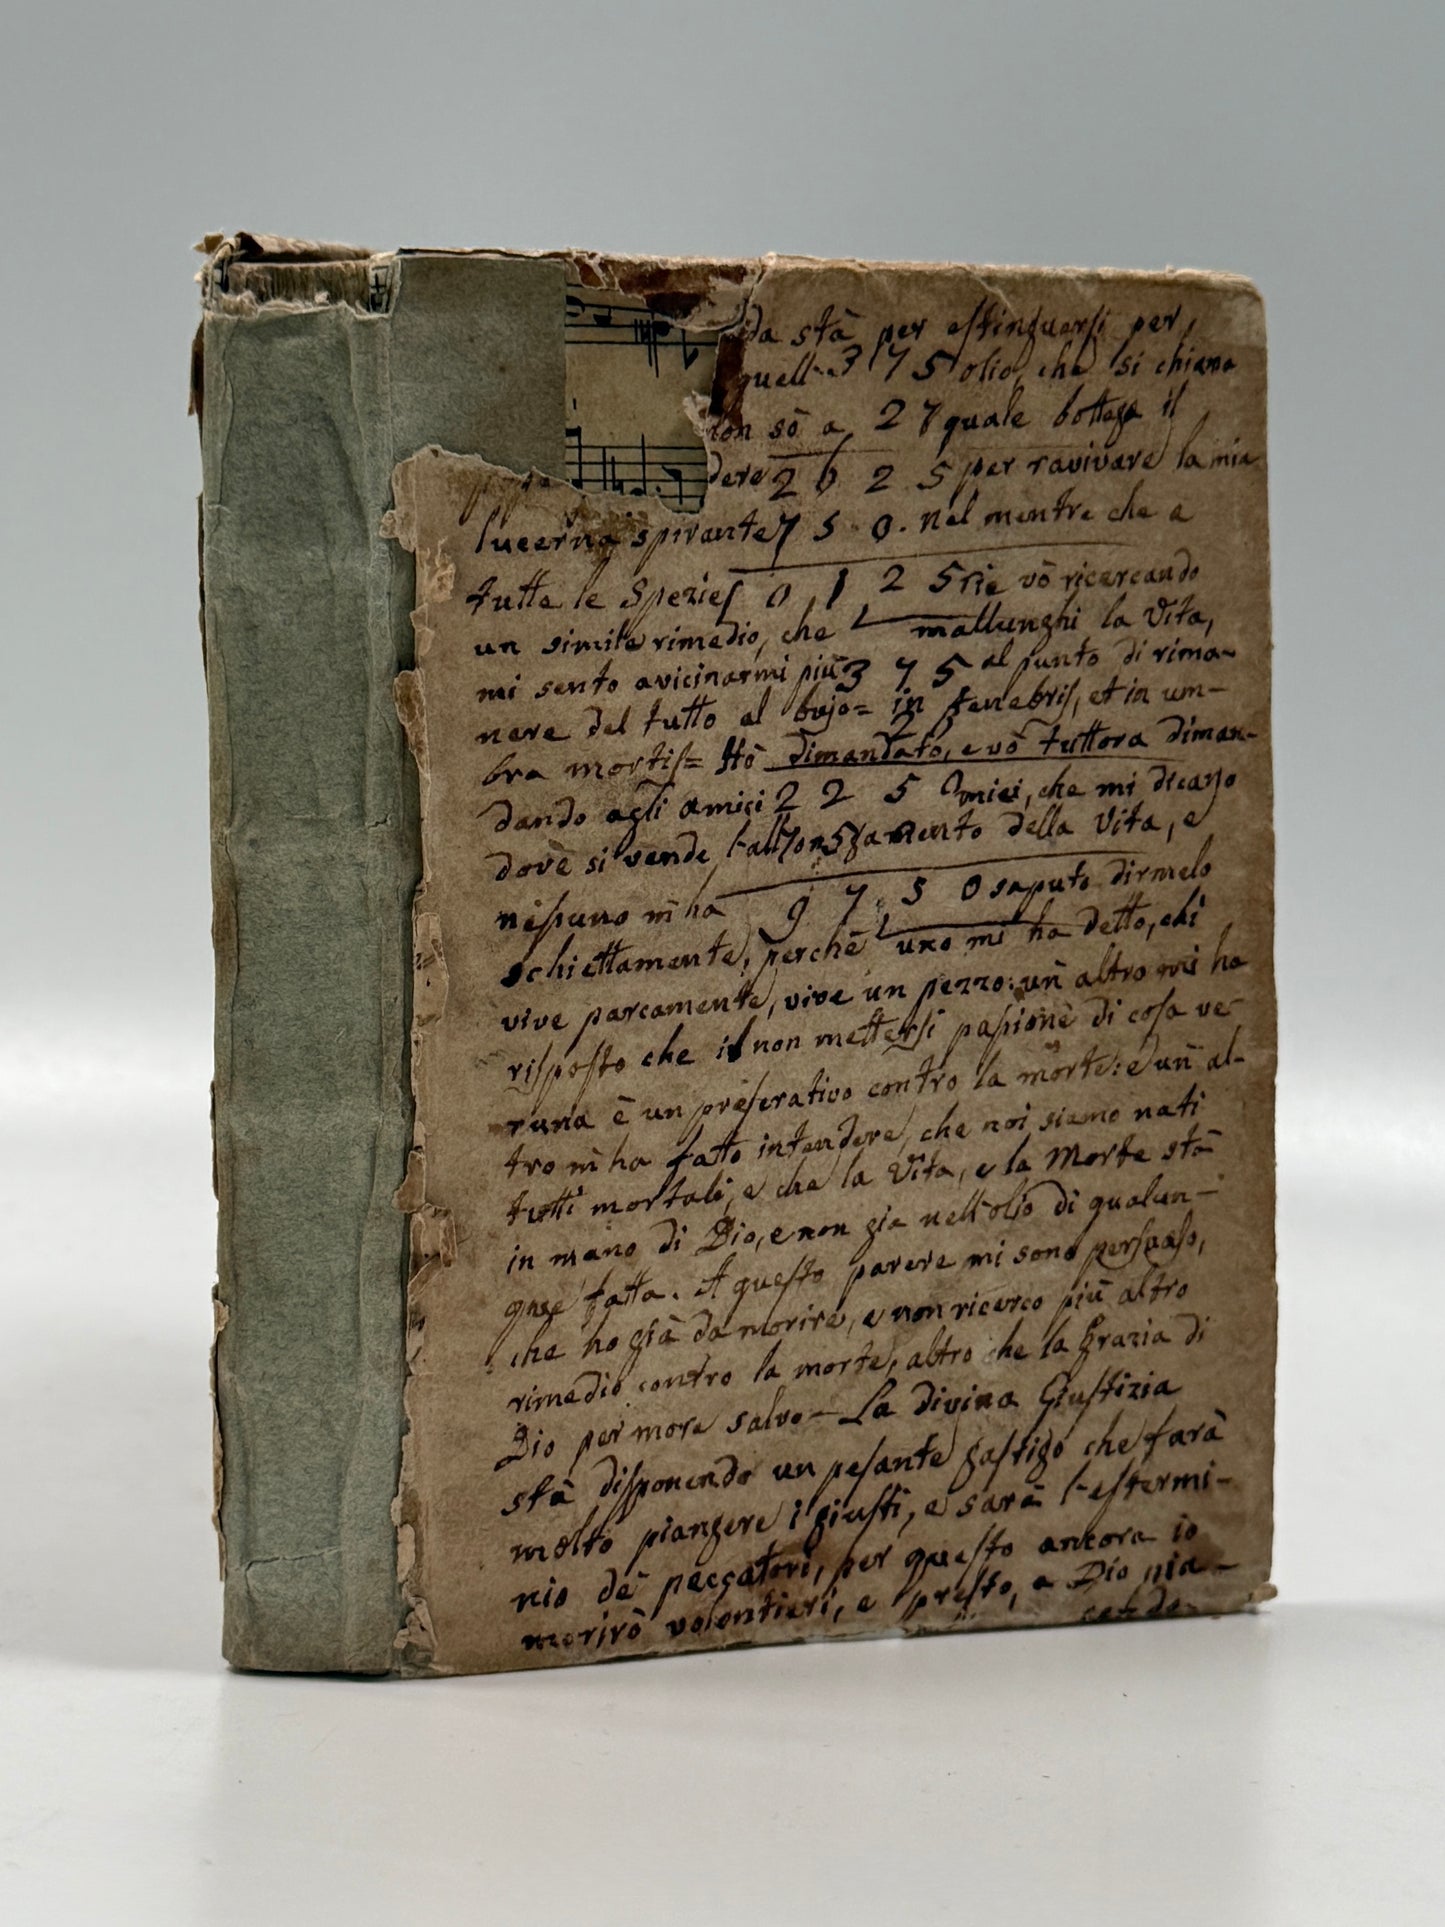 da stà per estinguersi per
quell 3 7 5 olio, che si chiama
non sò a 2 7 quale bottega il
dere 2 6 2 5 per ravivare la mia
lucerna spirante 7 5 0. nel mentre che a
tutte le Spezies 0 1 2 5 rie vò ricercando
un simile rimedio, che mallunghi la Vita,
mi sento avicinarmi più 3 7 5 al punto di rima-
nere del tutto al bujo= in tenebris, et in um-
bra mortis= Hò dimandato, e vò tuttora diman-
dando agli amici 2 2 5 miei, che mi dicano
dove si vende l'allongamento della Vita, e
nissuno m'ha 9 7 5 0 saputo dirmelo
schiettamente, perchè uno mi ha detto, chi
vive parcamente, vive un pezzo: un altro mi ha
risposto che il non mettersi passione di cosa ve-
runa è un preservativo contro la morte: e un al-
tro m'ha fatto intendere, che noi siamo nati
tutti mortali, e che la Vita, e la Morte stà
in mano di Dio, e non gia nell'olio di qualun-
que fatta. A questo parere mi sono persuaso,
che ho già da morire, e non ricerco più altro
rimedio contro la morte, altro che la Grazia di
Dio per more salvo- La divina Giustizia
stà disponendo un pesante gastigo che farà
molto piangere i giusti, e sarà l'estermi-
nio de' peccatori, per questo ancora io
morirò volontieri, e presto, a Dio pia-
cendo